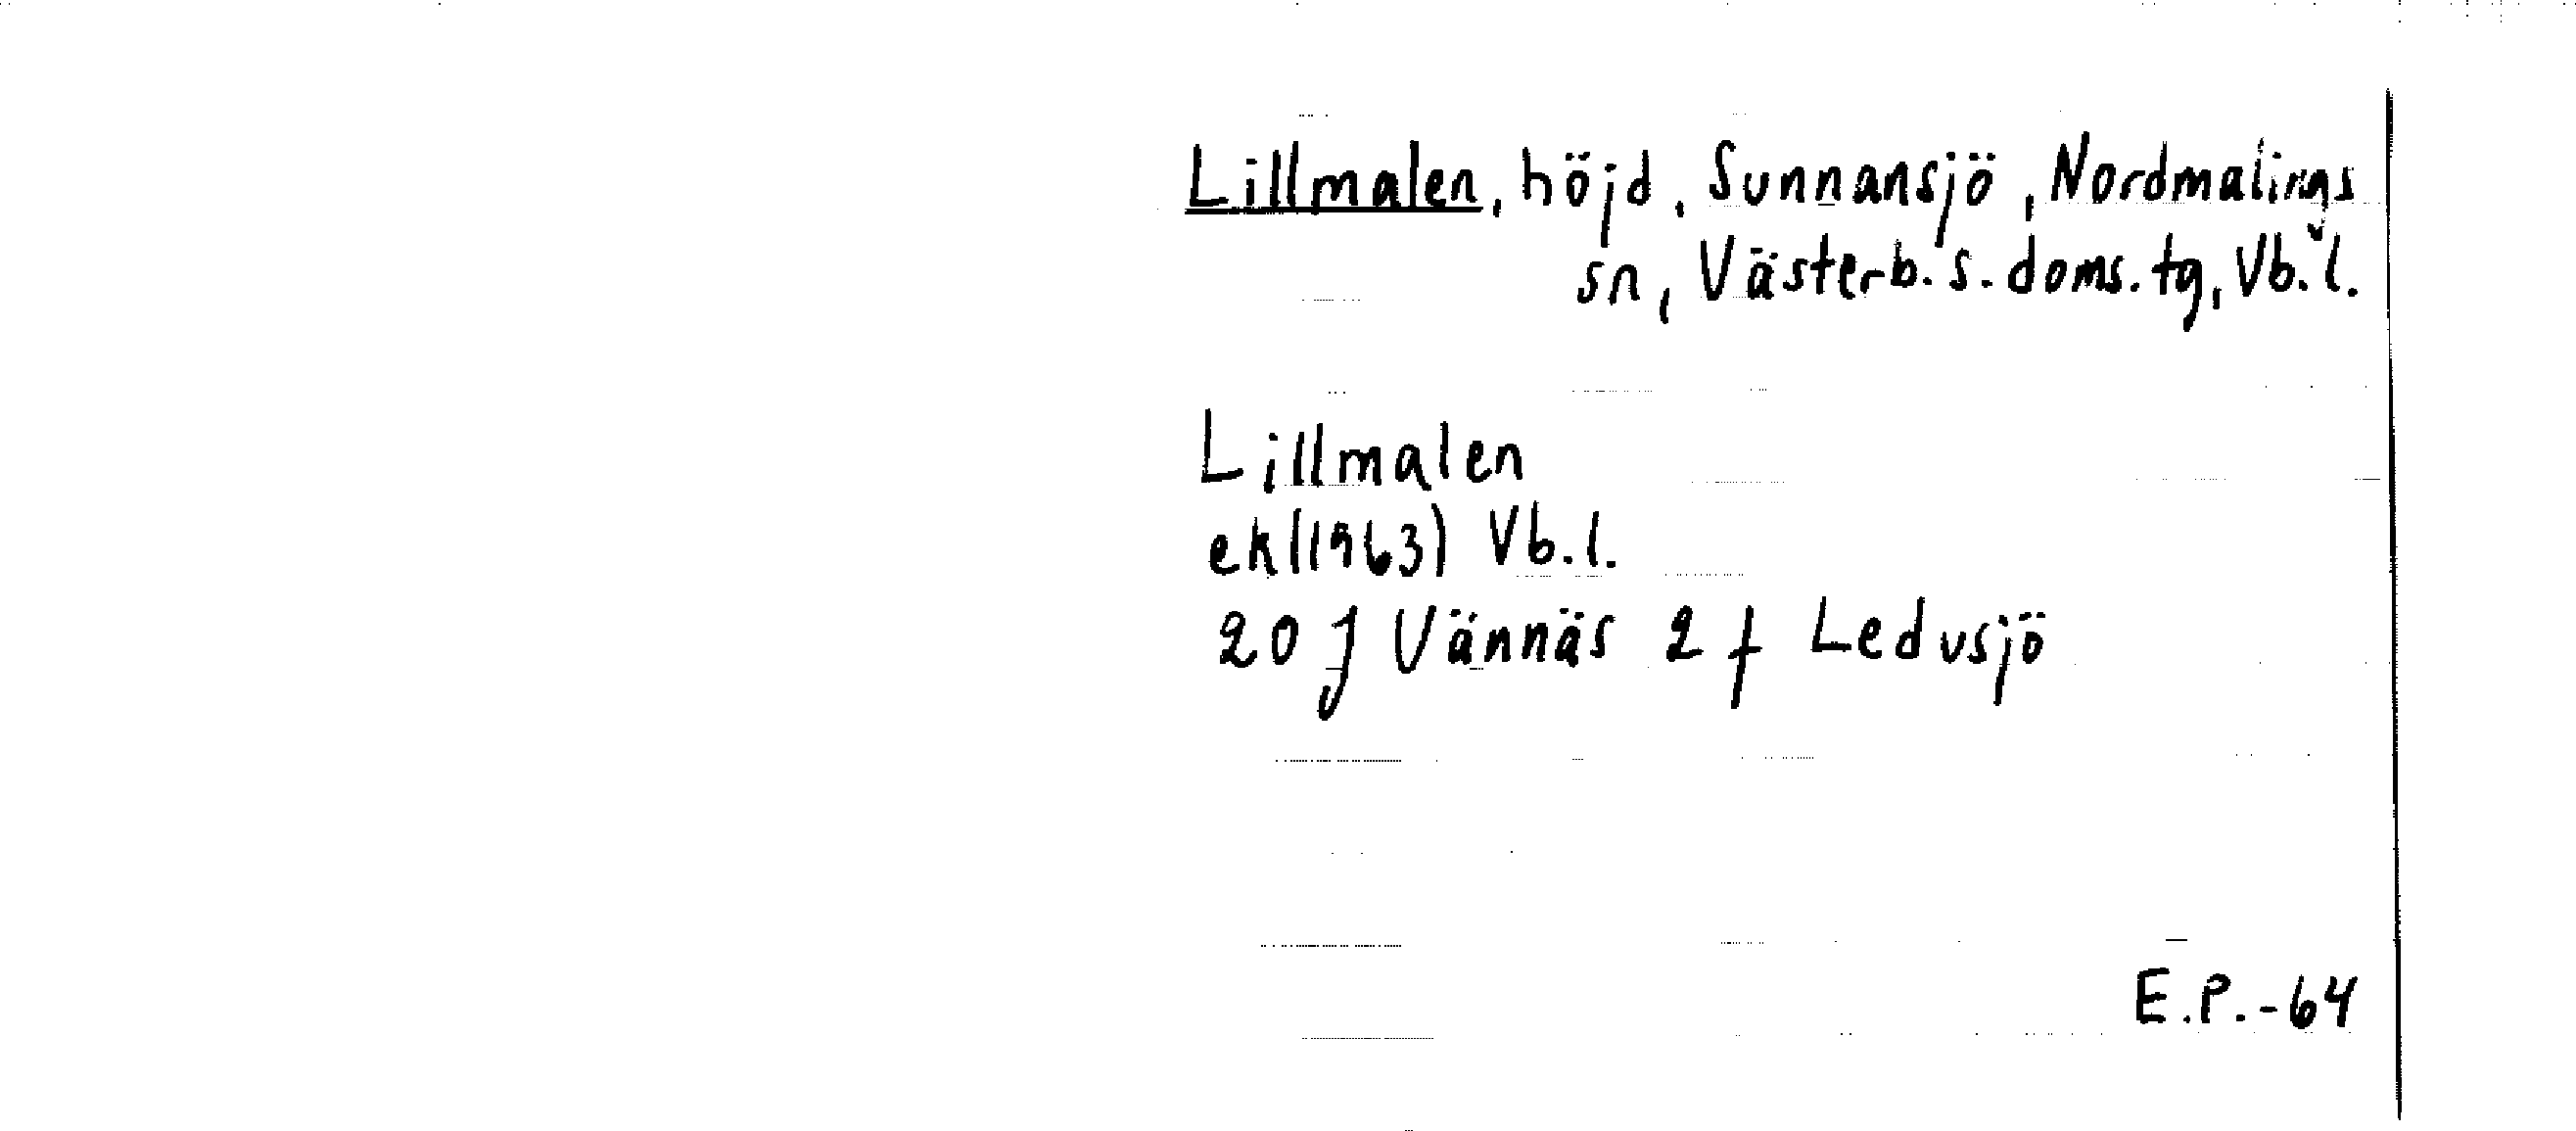 Lillmalen, höjd, Sunnansjö, Nordmalings
sn, Västerb. s. doms. tg, Vb. l.
Lillmalen
ek(1963) Vb. l.
20 J Vännäs 2 f Ledusjö
E.P.-64